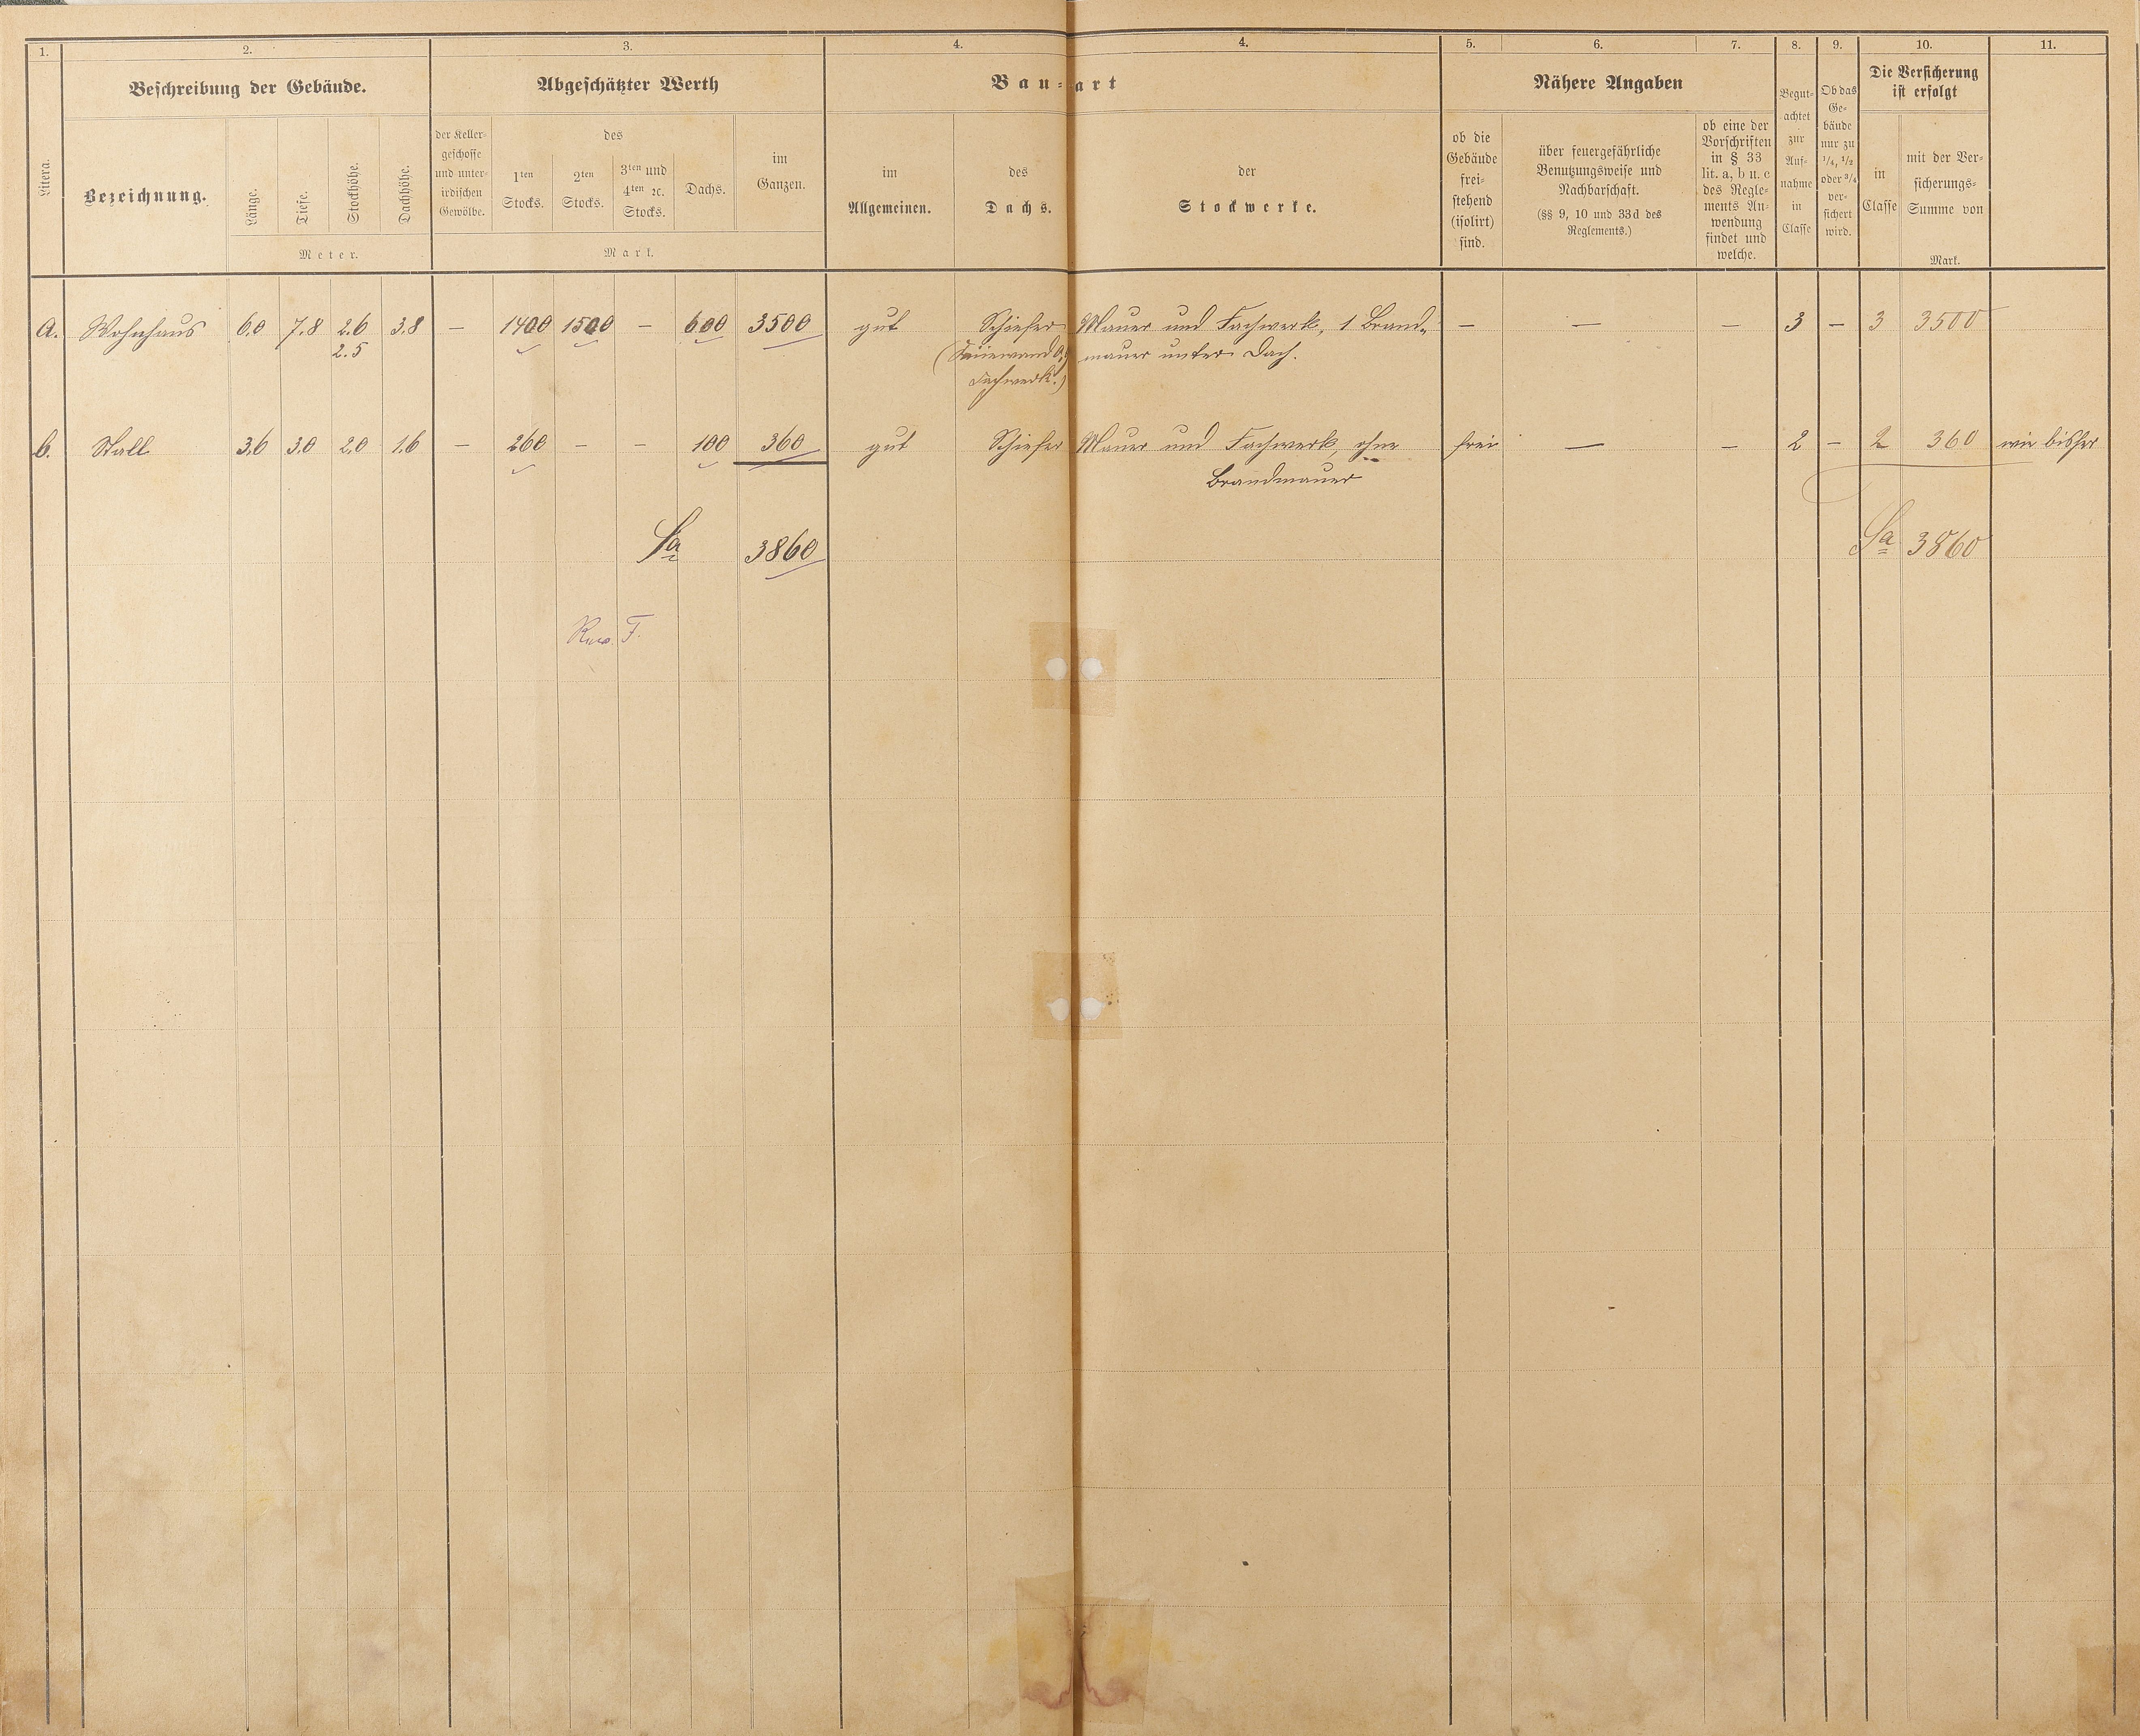 1. 2. 3. 4. 4. 5. 6. 7. 8. 9. 10. 11.
Litera.
Beschreibung der Gebäude.
Bezeichnung.
Länge.
Tiefe.
Stockhöhe.
Dachhöhe.
Meter.
Abgeschätzter Werth
der Keller-
geschosse
und unter-
irdischen
Gewölbe.
des
1ten
Stocks.
2ten
Stocks.
3ten und
4ten ꝛc.
Stocks.
Dachs.
im
Ganzen.
Mark.
Bau-art
im
Allgemeinen.
des
Dachs.
der
Stockwerke.
Nähere Angaben
ob die
Gebäude
frei-
stehend
(isolirt)
sind.
über feuergefährliche
Benutzungsweise und
Nachbarschaft.
(§§ 9, 10 und 33d des
Reglements.)
ob eine der
Vorschriften
in § 33
lit. a, b u. c
des Regle-
ments An-
wendung
findet und
welche.
Begut-
achtet
zur
Auf-
nahme
in
Classe
Ob das
Ge-
bäude
nur zu
1/4, 1/2
oder 3/4
ver-
sichert
wird.
Die Versicherung
ist erfolgt
in
Classe
mit der Ver-
sicherungs-
Summe von
Mark.
a. Wohnhaus 6,0 7.8 2.6 3.8 — 1400 1500 — 600 3500 gut Schiefer Mauer und Fachwerk, 1 Brand- — — — 3 — 3 3500
2.5 mauer unter Dach.
Fachwerk.)
b. Stall 3,6 3,0 2,0 1,6 — 260 — — 100 360 gut Schiefer Mauer und Fachwerk, ohne frei — — 2 — 2 360 wie bisher
Brandmauer
Sa 3860 Sa 3860